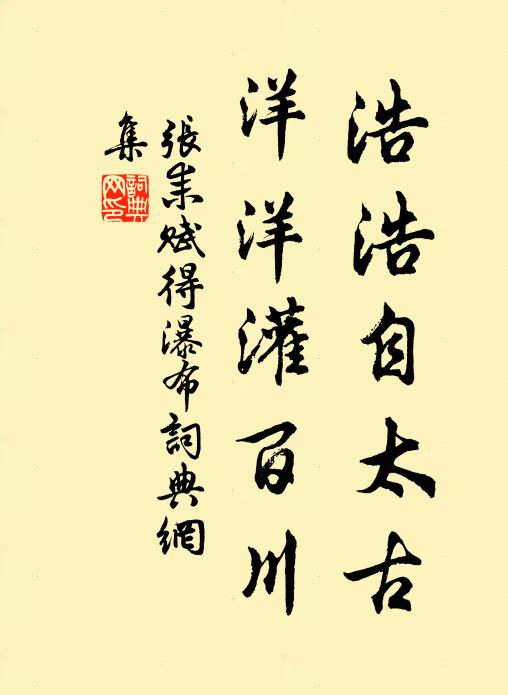 浩浩自太古
洋洋灌百川
張耒賦得瀑布詞典網
集
詞典網印